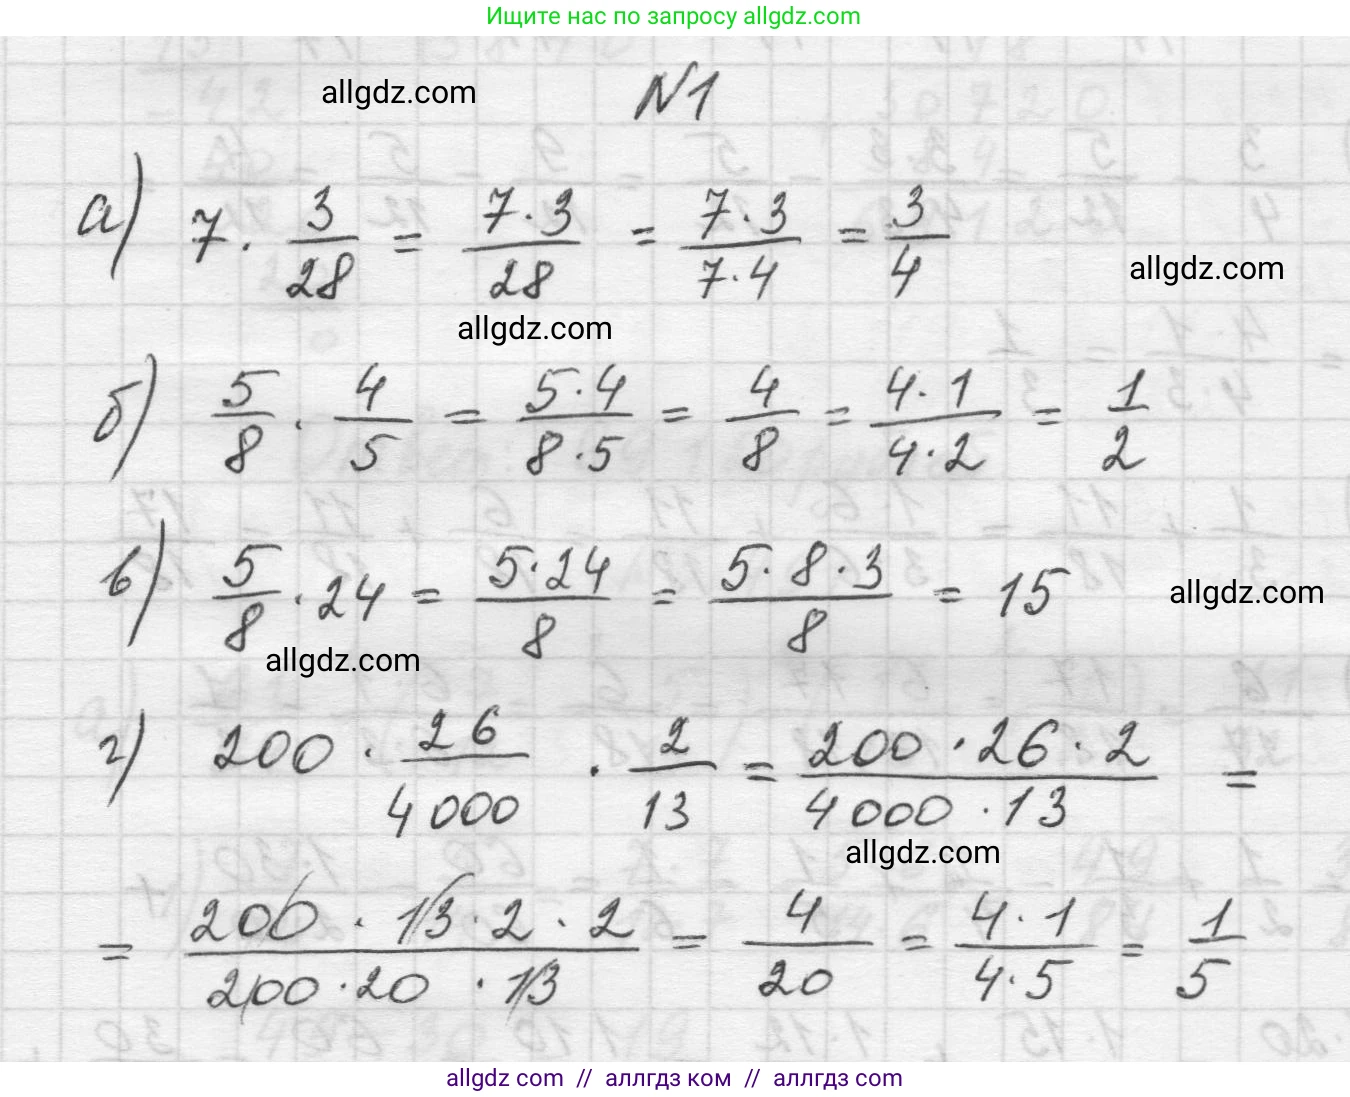 Ищите нас по запросу allgdz.com
allgdz.com
N1
а) 7 · 3/28 = 7·3/28 = 7·3/7·4 = 3/4
allgdz.com
allgdz.com
б) 5/8 · 4/5 = 5·4/8·5 = 4/8 = 4·1/4·2 = 1/2
в) 5/8 · 24 = 5·24/8 = 5·8·3/8 = 15
allgdz.com
allgdz.com
г) 200 · 26/4000 · 2/13 = 200·26·2/4000·13 =
allgdz.com
= 200·13·2·2/200·20·13 = 4/20 = 4·1/4·5 = 1/5
allgdz.com // аллгдз ком // аллгдз.com